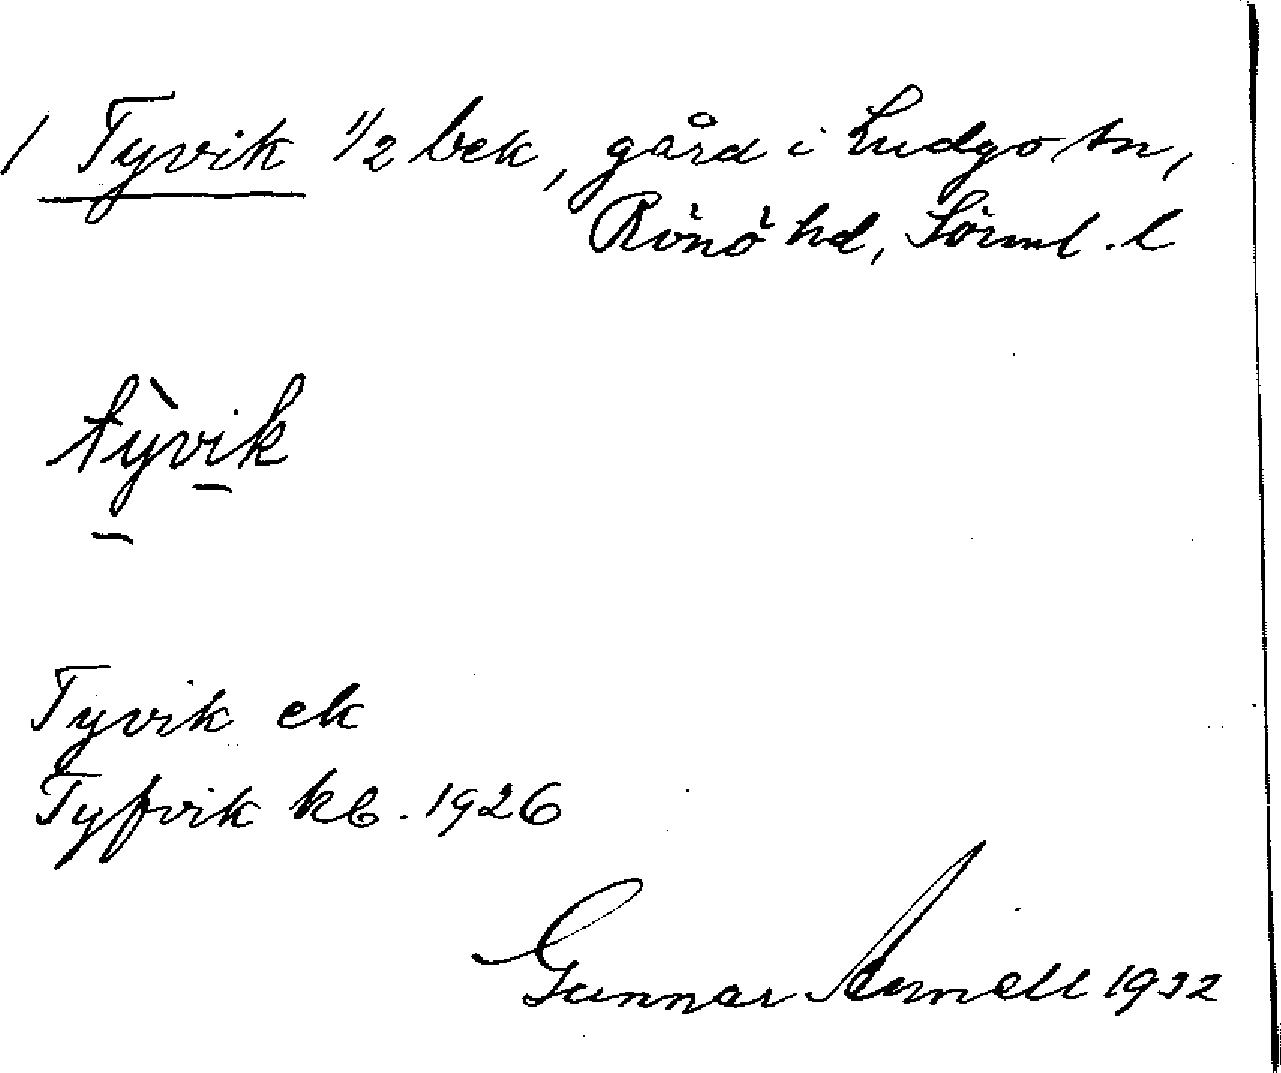 / Tyvik 1/2 bek, gård i Ludgo sn,
Rönö hd, Sörml. l
tỳvik
Tyvik ek
Tyfvik kb. 1926
Gunnar Arnell 1932